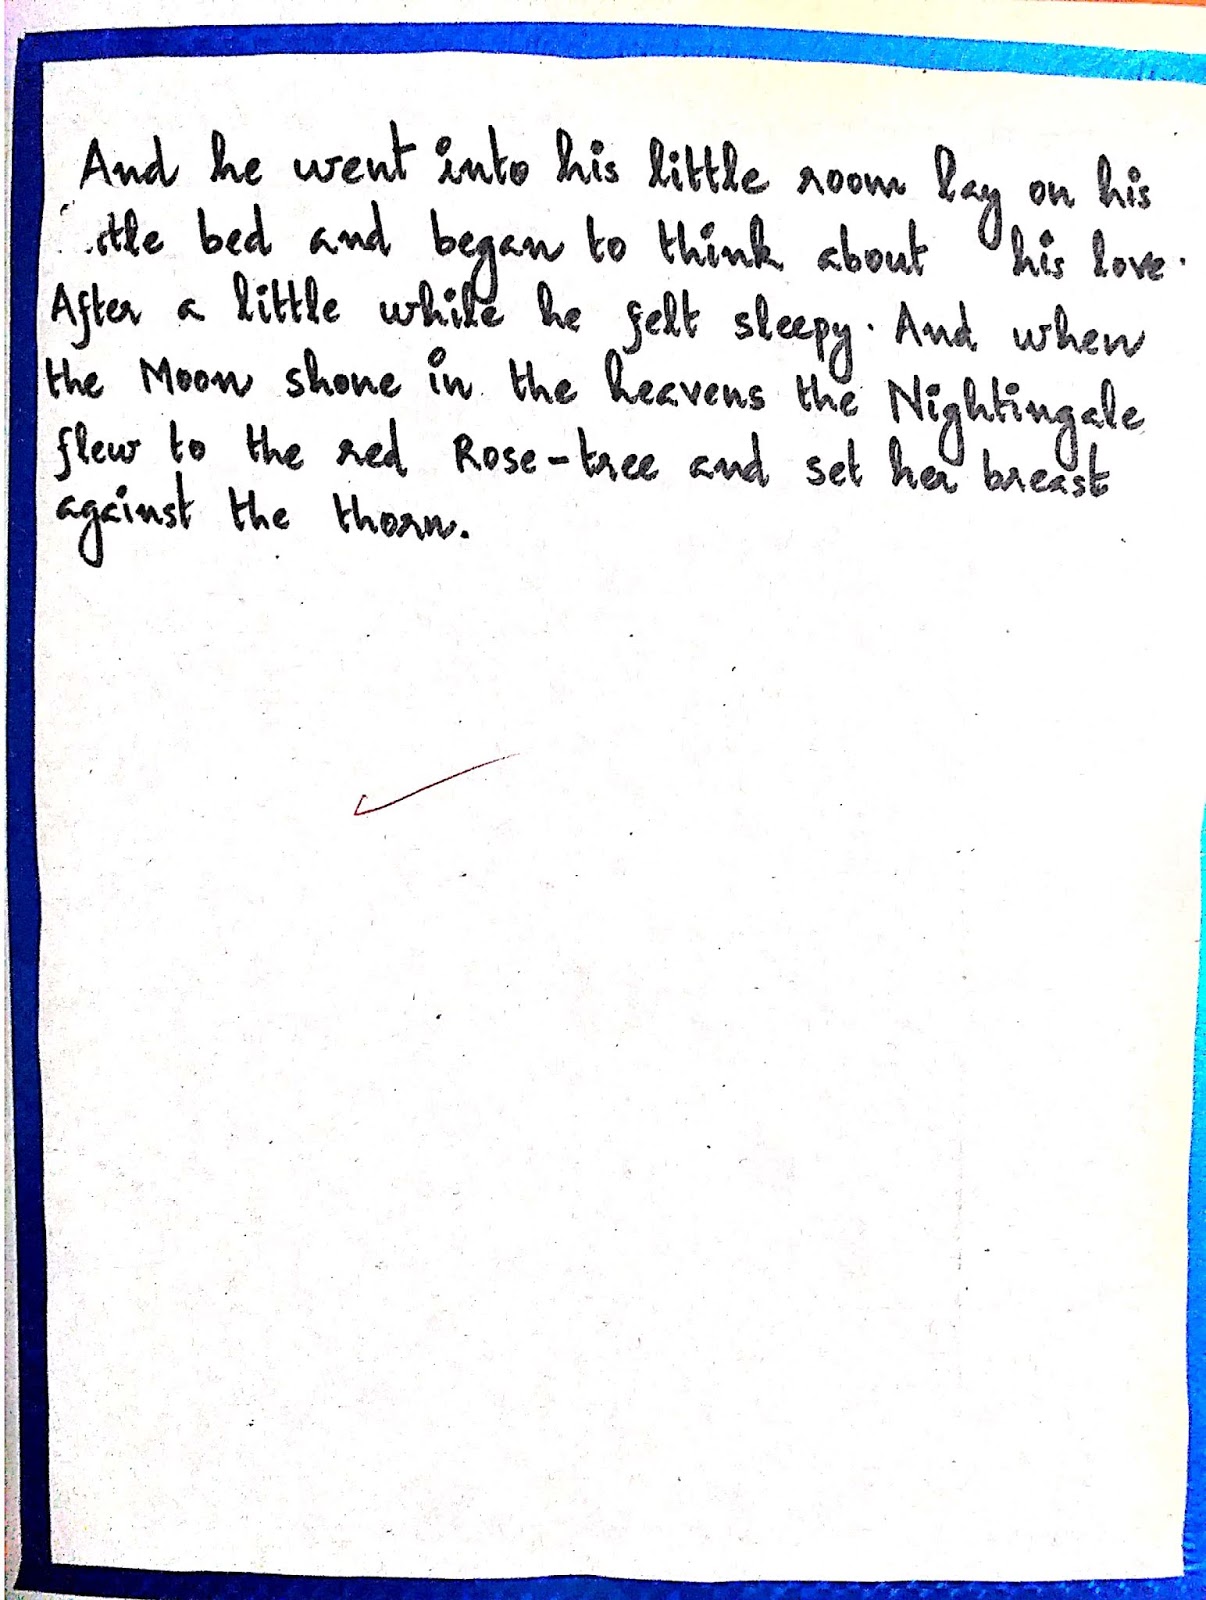 And he went into his little room lay on his
ttle bed and began to think about his love.
After a little while he felt sleepy. And when
the Moon shone in the heavens the Nightingale
flew to the red Rose-tree and set her breast
against the thorn.